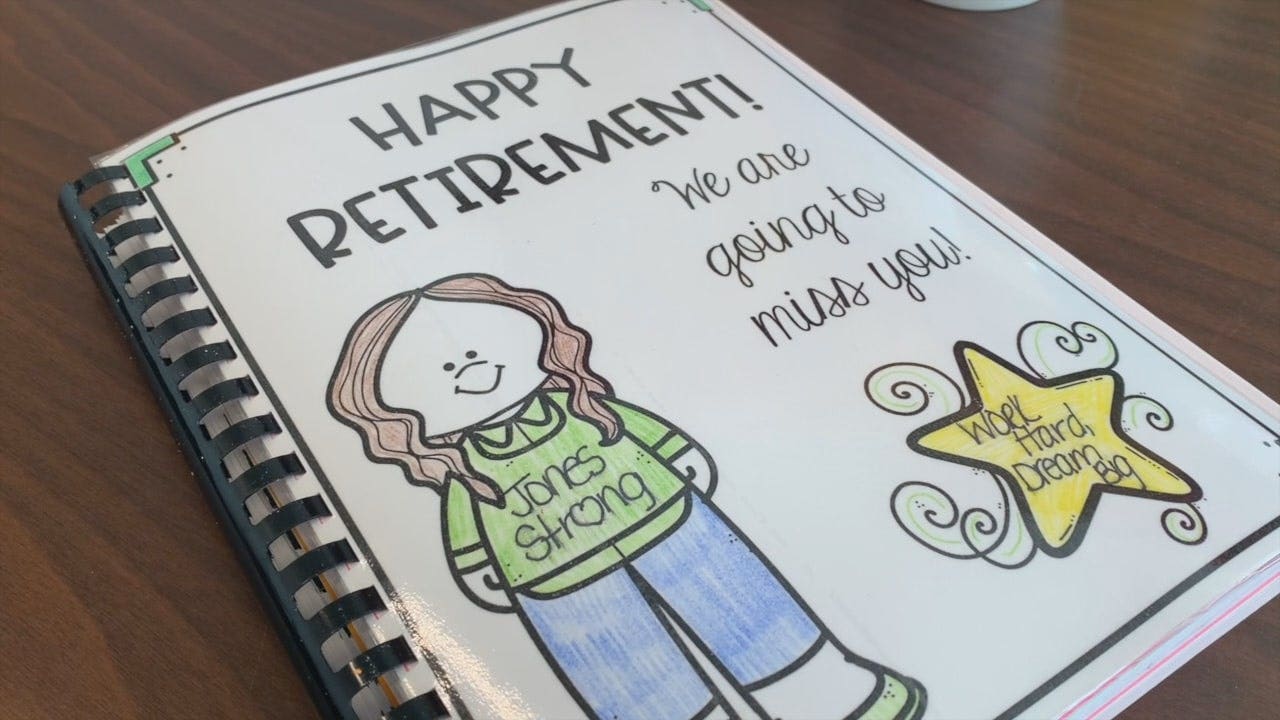 HAPPY
RETIREMENT!
We are
going to
miss you!
Jones
Strong
Work
Hard,
Dream
Big